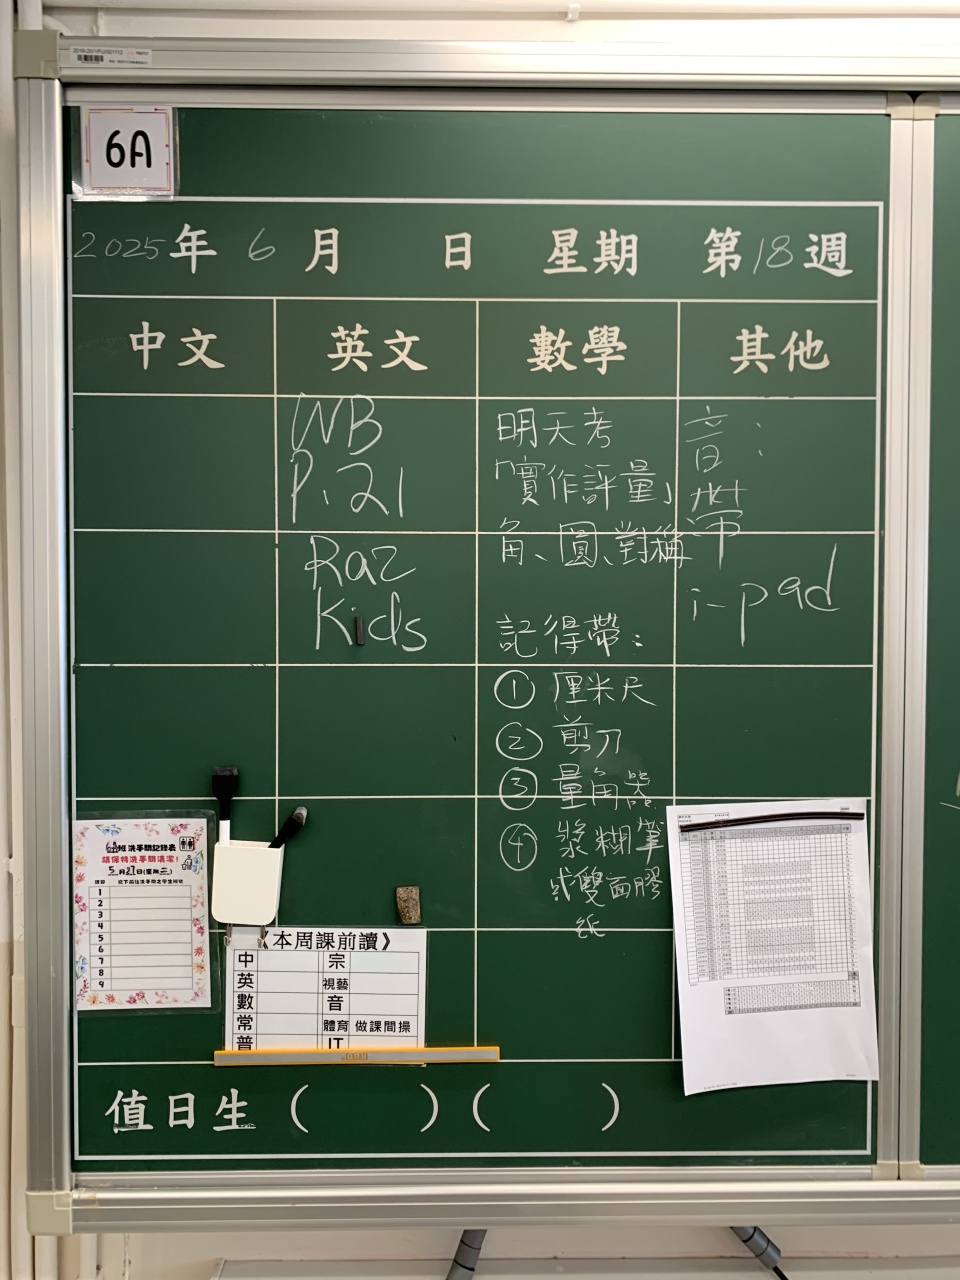 6A
2025年 6 月 日 星期 第18週
中文 英文 數學 其他
WB
P.21
Raz
Kids
明天考
「實作評量」
角、圓、對稱
記得帶：
① 厘米尺
② 剪刀
③ 量角器
④ 漿糊筆
或雙面膠
紙
音：
帶
i-pad
6A班 洗手間記錄表
請保持洗手間清潔！
5月27日(星期三)
1
2
3
4
5
6
7
8
9
《本周課前讀》
中 宗
英 視藝
數 音
常 體育 做課間操
普 IT
值日生（ ）（ ）